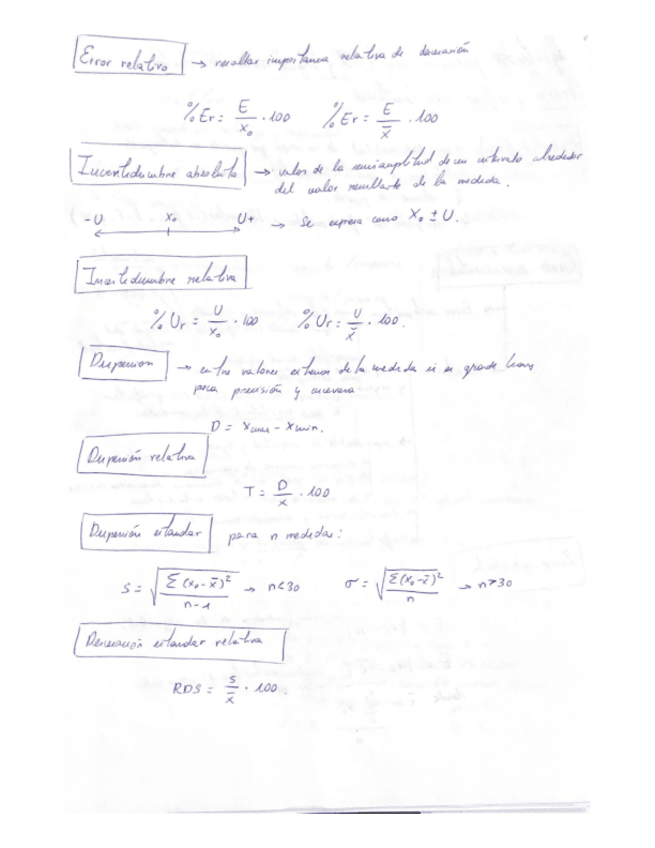 Error relativo → resaltar importancia relativa de desviación
%Er = E/X₀ · 100 %Er = E/x̄ · 100
Incertidumbre absoluta → valor de la semiamplitud de un intervalo alrededor
del valor resultante de la medida.
-U X₀ U+ → Se expresa como X₀ ± U.
Incertidumbre relativa
%Ur = U/X₀ · 100 %Ur = U/x̄ · 100.
Dispersion → entre valores extremos de la medida si es grande hay
poca precisión y viceversa
D = Xmax - Xmin.
Dispersión relativa
T = D/x̄ · 100
Dispersión estandar para n medidas:
S = √(Σ(x₀-x̄)²/n-1) → n<30 σ = √(Σ(x₀-x̄)²/n) → n>30
Desviación estandar relativa
RDS = S/x̄ · 100.